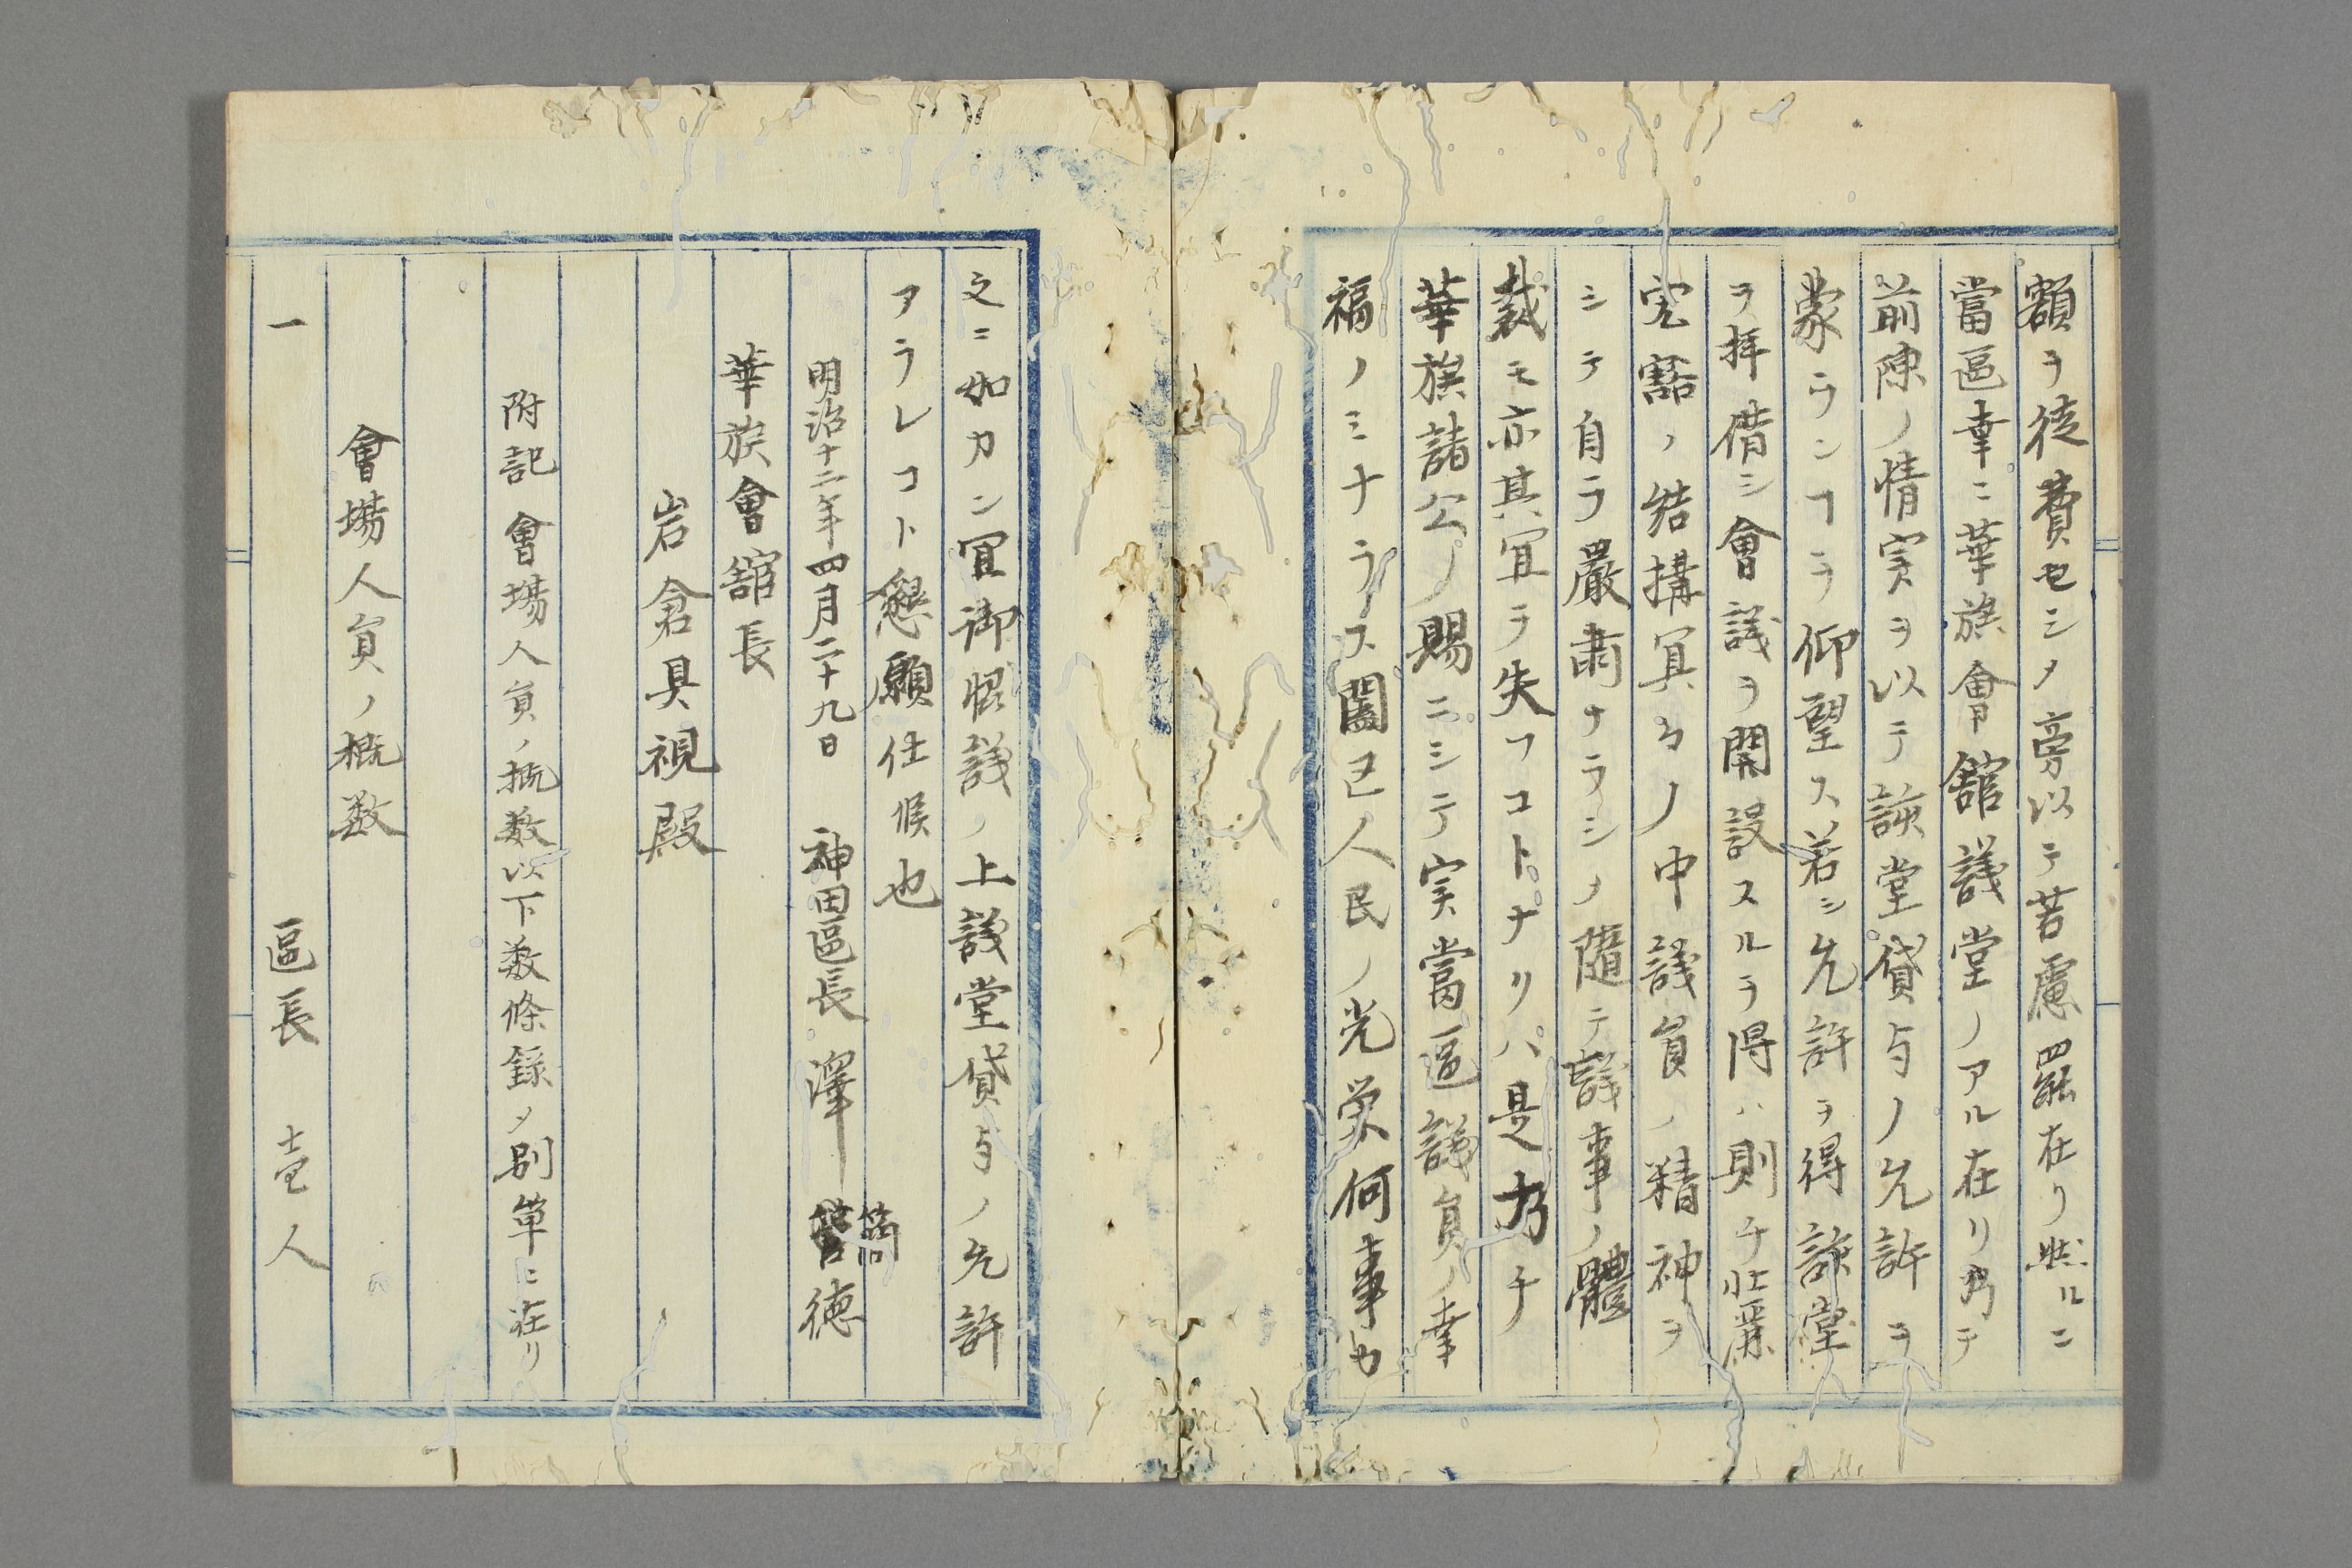 額ヲ徒費セシメ旁以テ苦慮罷在リ然ルニ
當區幸ニ華族會舘議堂ノアル在リ乃チ
前陳ノ情実ヲ以テ該堂貸与ノ允許ヲ
蒙ランヿヲ仰望ス若シ允許ヲ得該堂
ヲ拝借シ會議ヲ開設スルヲ得ハ則チ壮麗
宏豁ノ結構冥々ノ中議員ノ精神ヲ
シテ自ラ嚴肅ナラシメ随テ議事ノ體
裁モ亦其宜ヲ失フコトナリハ是乃チ
華族諸公ノ賜ニシテ実當區議員ノ幸
福ノミナラス闔区人民ノ光栄何事カ
之ニ如カン宜御恕議ノ上議堂貸与ノ允許
アラレコト懇願仕候也
明治十二年四月二十九日 神田區長 澤 簡徳
華族會舘長
岩倉具視殿
附記 會場人員ノ概数以下数條録メ別單ニ在リ
會場人員ノ概数
一 區長 壱人